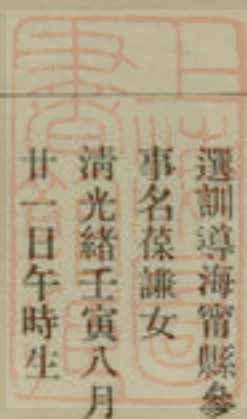 選訓導海甯縣參
事名葆謙女
清光緒壬寅八月
廿一日午時生